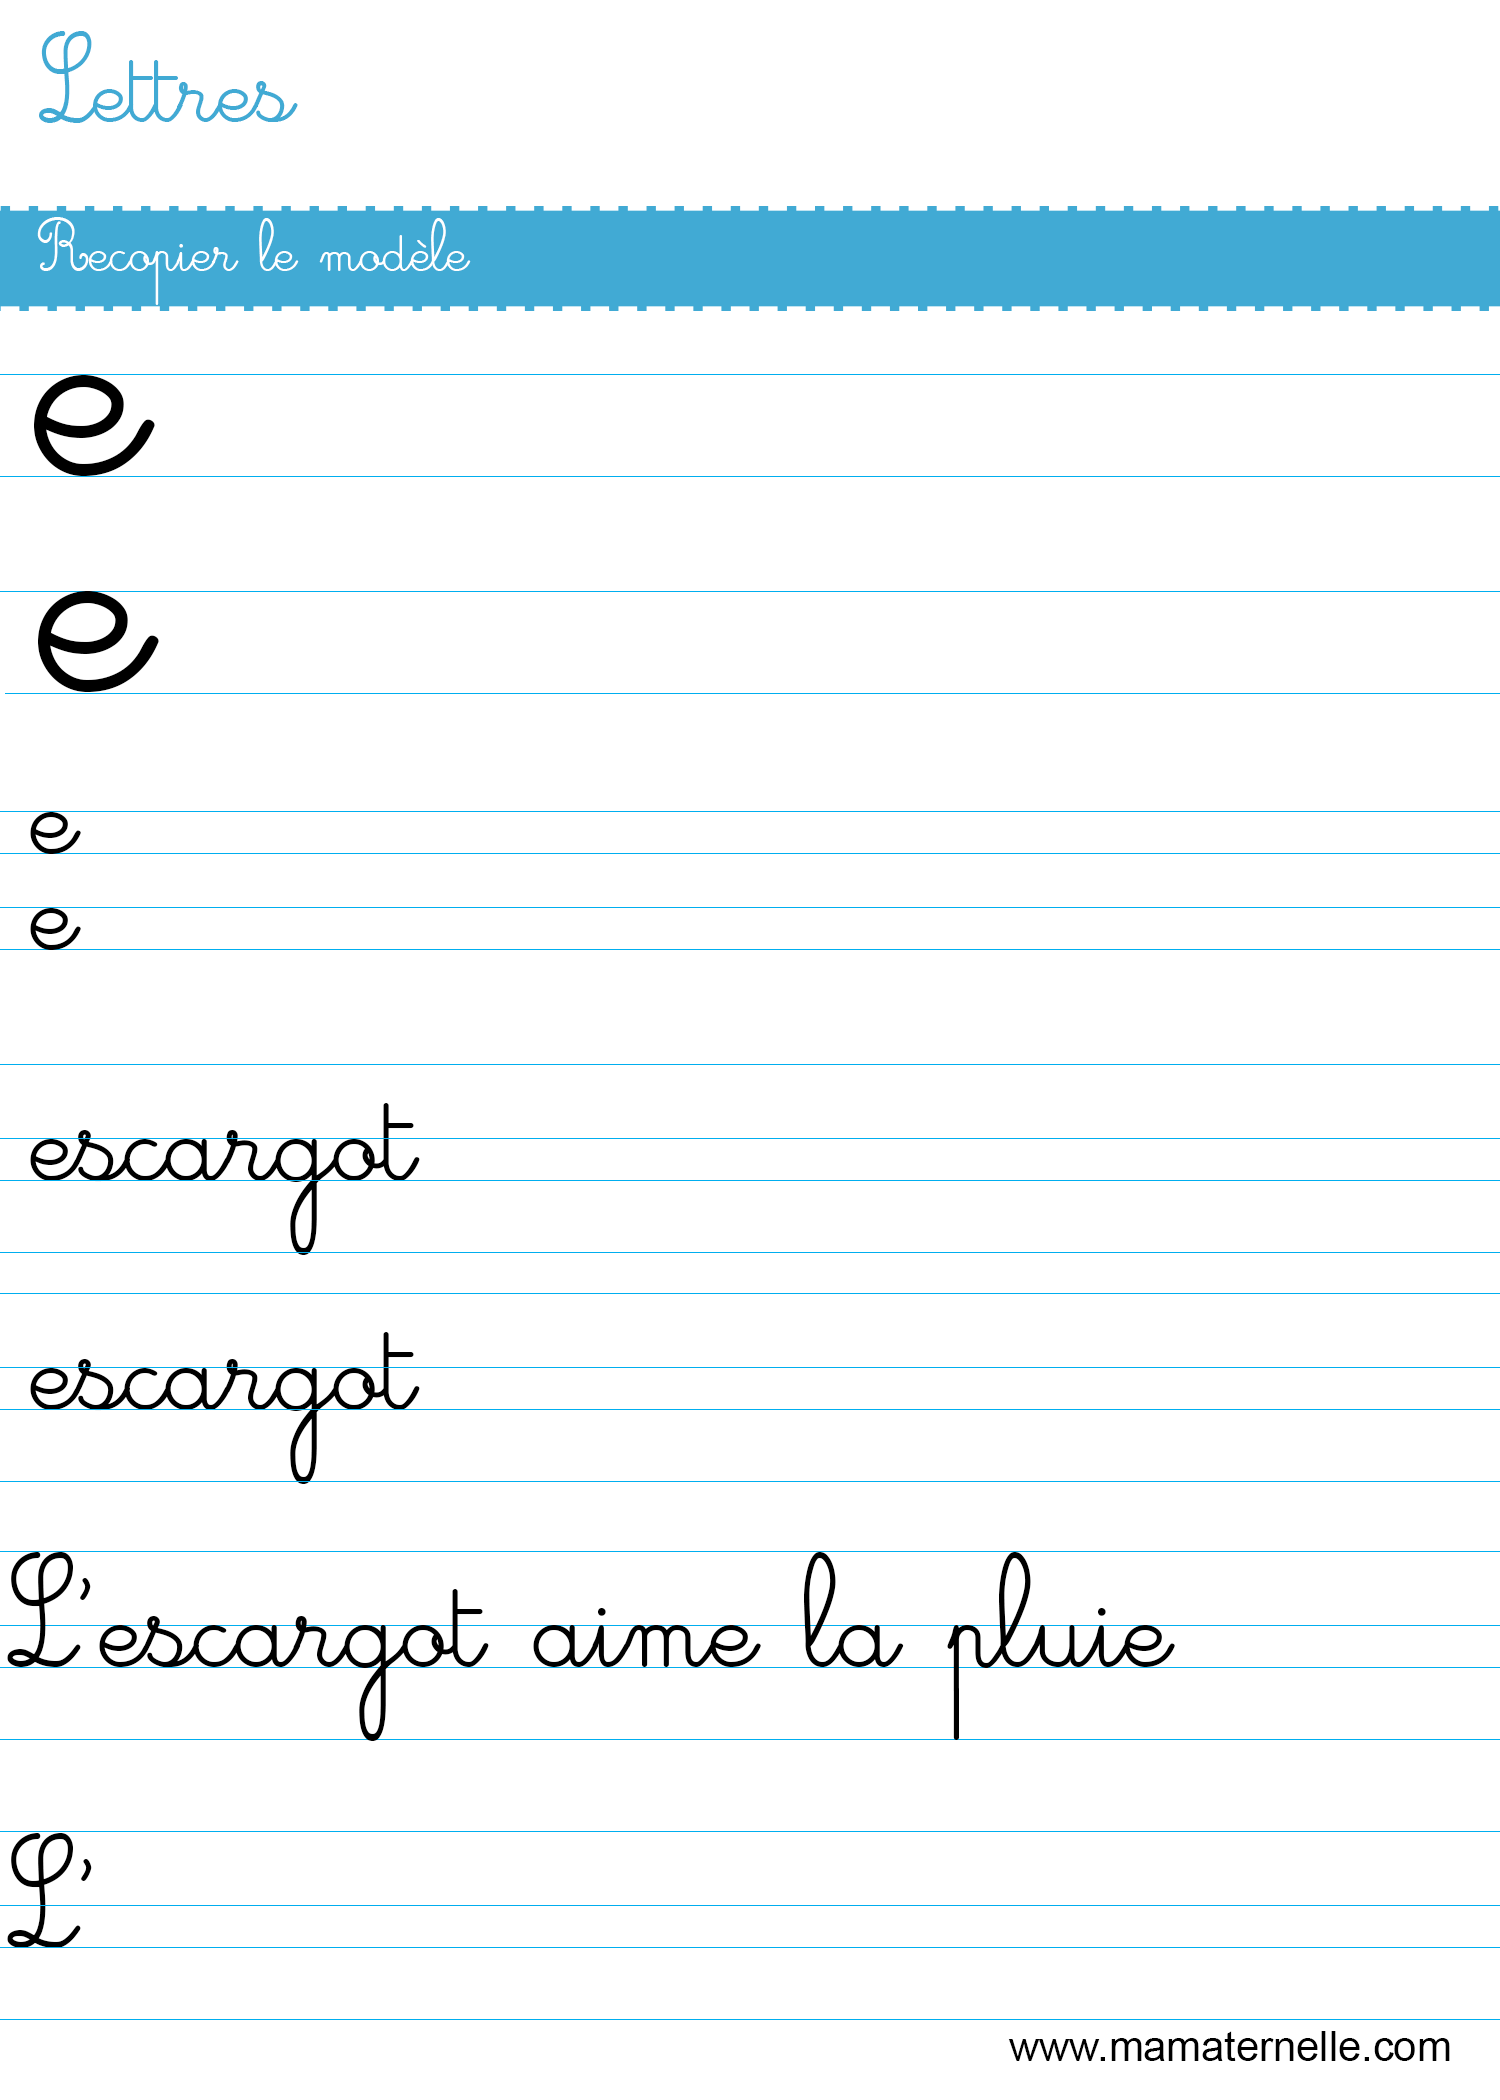 Lettres
Recopier le modèle
e
e
e
e
escargot
escargot
L'escargot aime la pluie
L'
www.mamaternelle.com